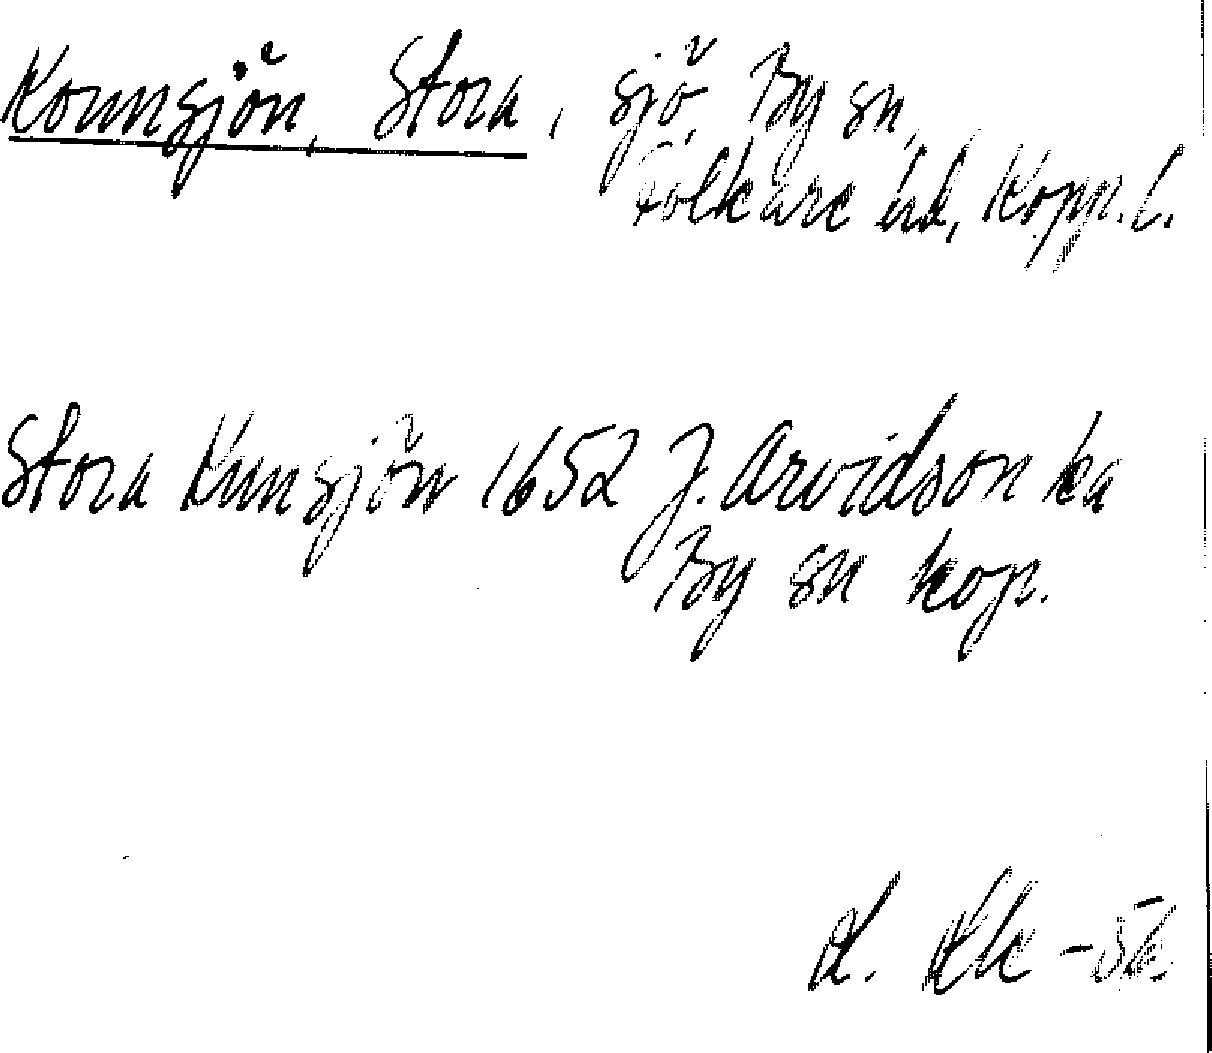 Konnsjön, Stora, sjö, By sn,
Folkare hd, Kopp. l.
Stora Kunsjön 1652 J. Arvidson ka
By sn kop.